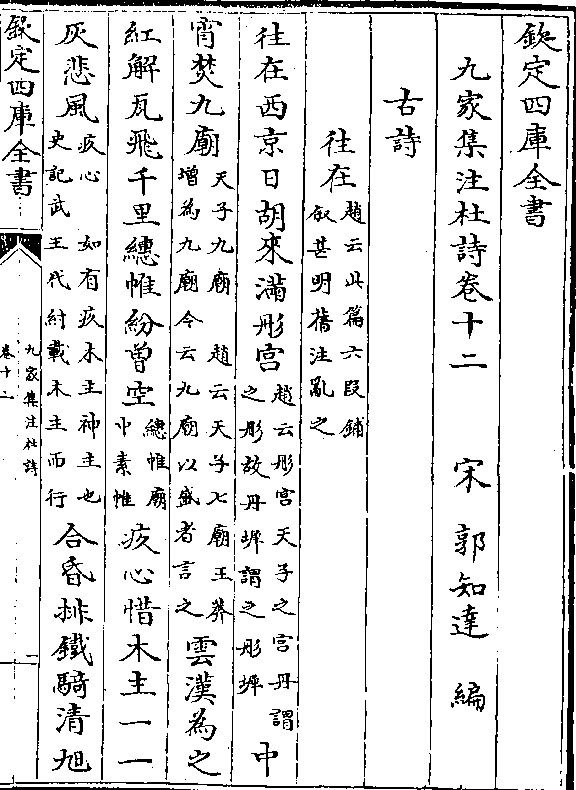 欽定四庫全書
九家集注杜詩卷十二 宋 郭知達 編
古詩
往在
趙云此篇六段鋪
叙甚明舊注亂之
往在西京日胡來滿彤宮
趙云彤宮天子之宮丹謂
之彤故丹墀謂之彤墀
中
宵焚九廟
天子九廟 趙云天子七廟王莽
增為九廟今云九廟以盛者言之
雲漢為之
紅解瓦飛千里繐帷紛曾空
繐帷廟
中素帷
疚心惜木主一一
灰悲風
疚心 如有疚木主神主也
史記武王伐紂載木主而行
合昏排鐵騎清旭
欽定四庫全書
九家集注杜詩
卷十二
一